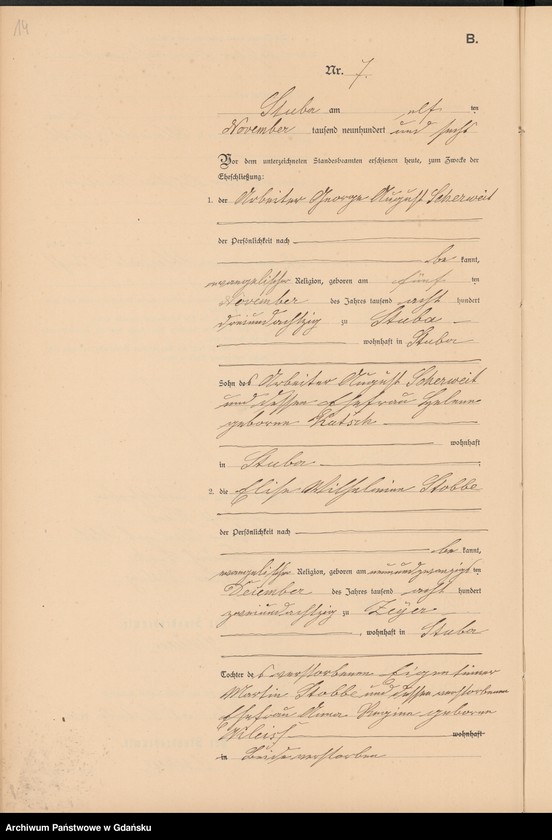 14
B.
Nr. 7.
Stuba am elf ten
November tausend neunhundert und sechs
Vor dem unterzeichneten Standesbeamten erschienen heute, zum Zwecke der
Eheschließung:
1. der Arbeiter George August Scherweit
der Persönlichkeit nach
be kannt,
evangelischer Religion, geboren am fünf ten
November des Jahres tausend acht hundert
dreiundachtzig zu Stuba
wohnhaft in Stuba
Sohn des Arbeiter August Scherweit
und dessen Ehefrau Helene
geborene Kutsch
wohnhaft
in Stuba
2. die Elise Wilhelmine Stobbe
der Persönlichkeit nach
be kannt,
evangelischer Religion, geboren am neunundzwanzigs ten
Dezember des Jahres tausend acht hundert
zweiundachtzig zu Zeyer
, wohnhaft in Stuba
Tochter des verstorbenen Eigentümer
Martin Stobbe und dessen verstorbenen
Ehefrau Anna Regina geborene
wohnhaft
in Beide verstorben
Archiwum Państwowe w Gdańsku